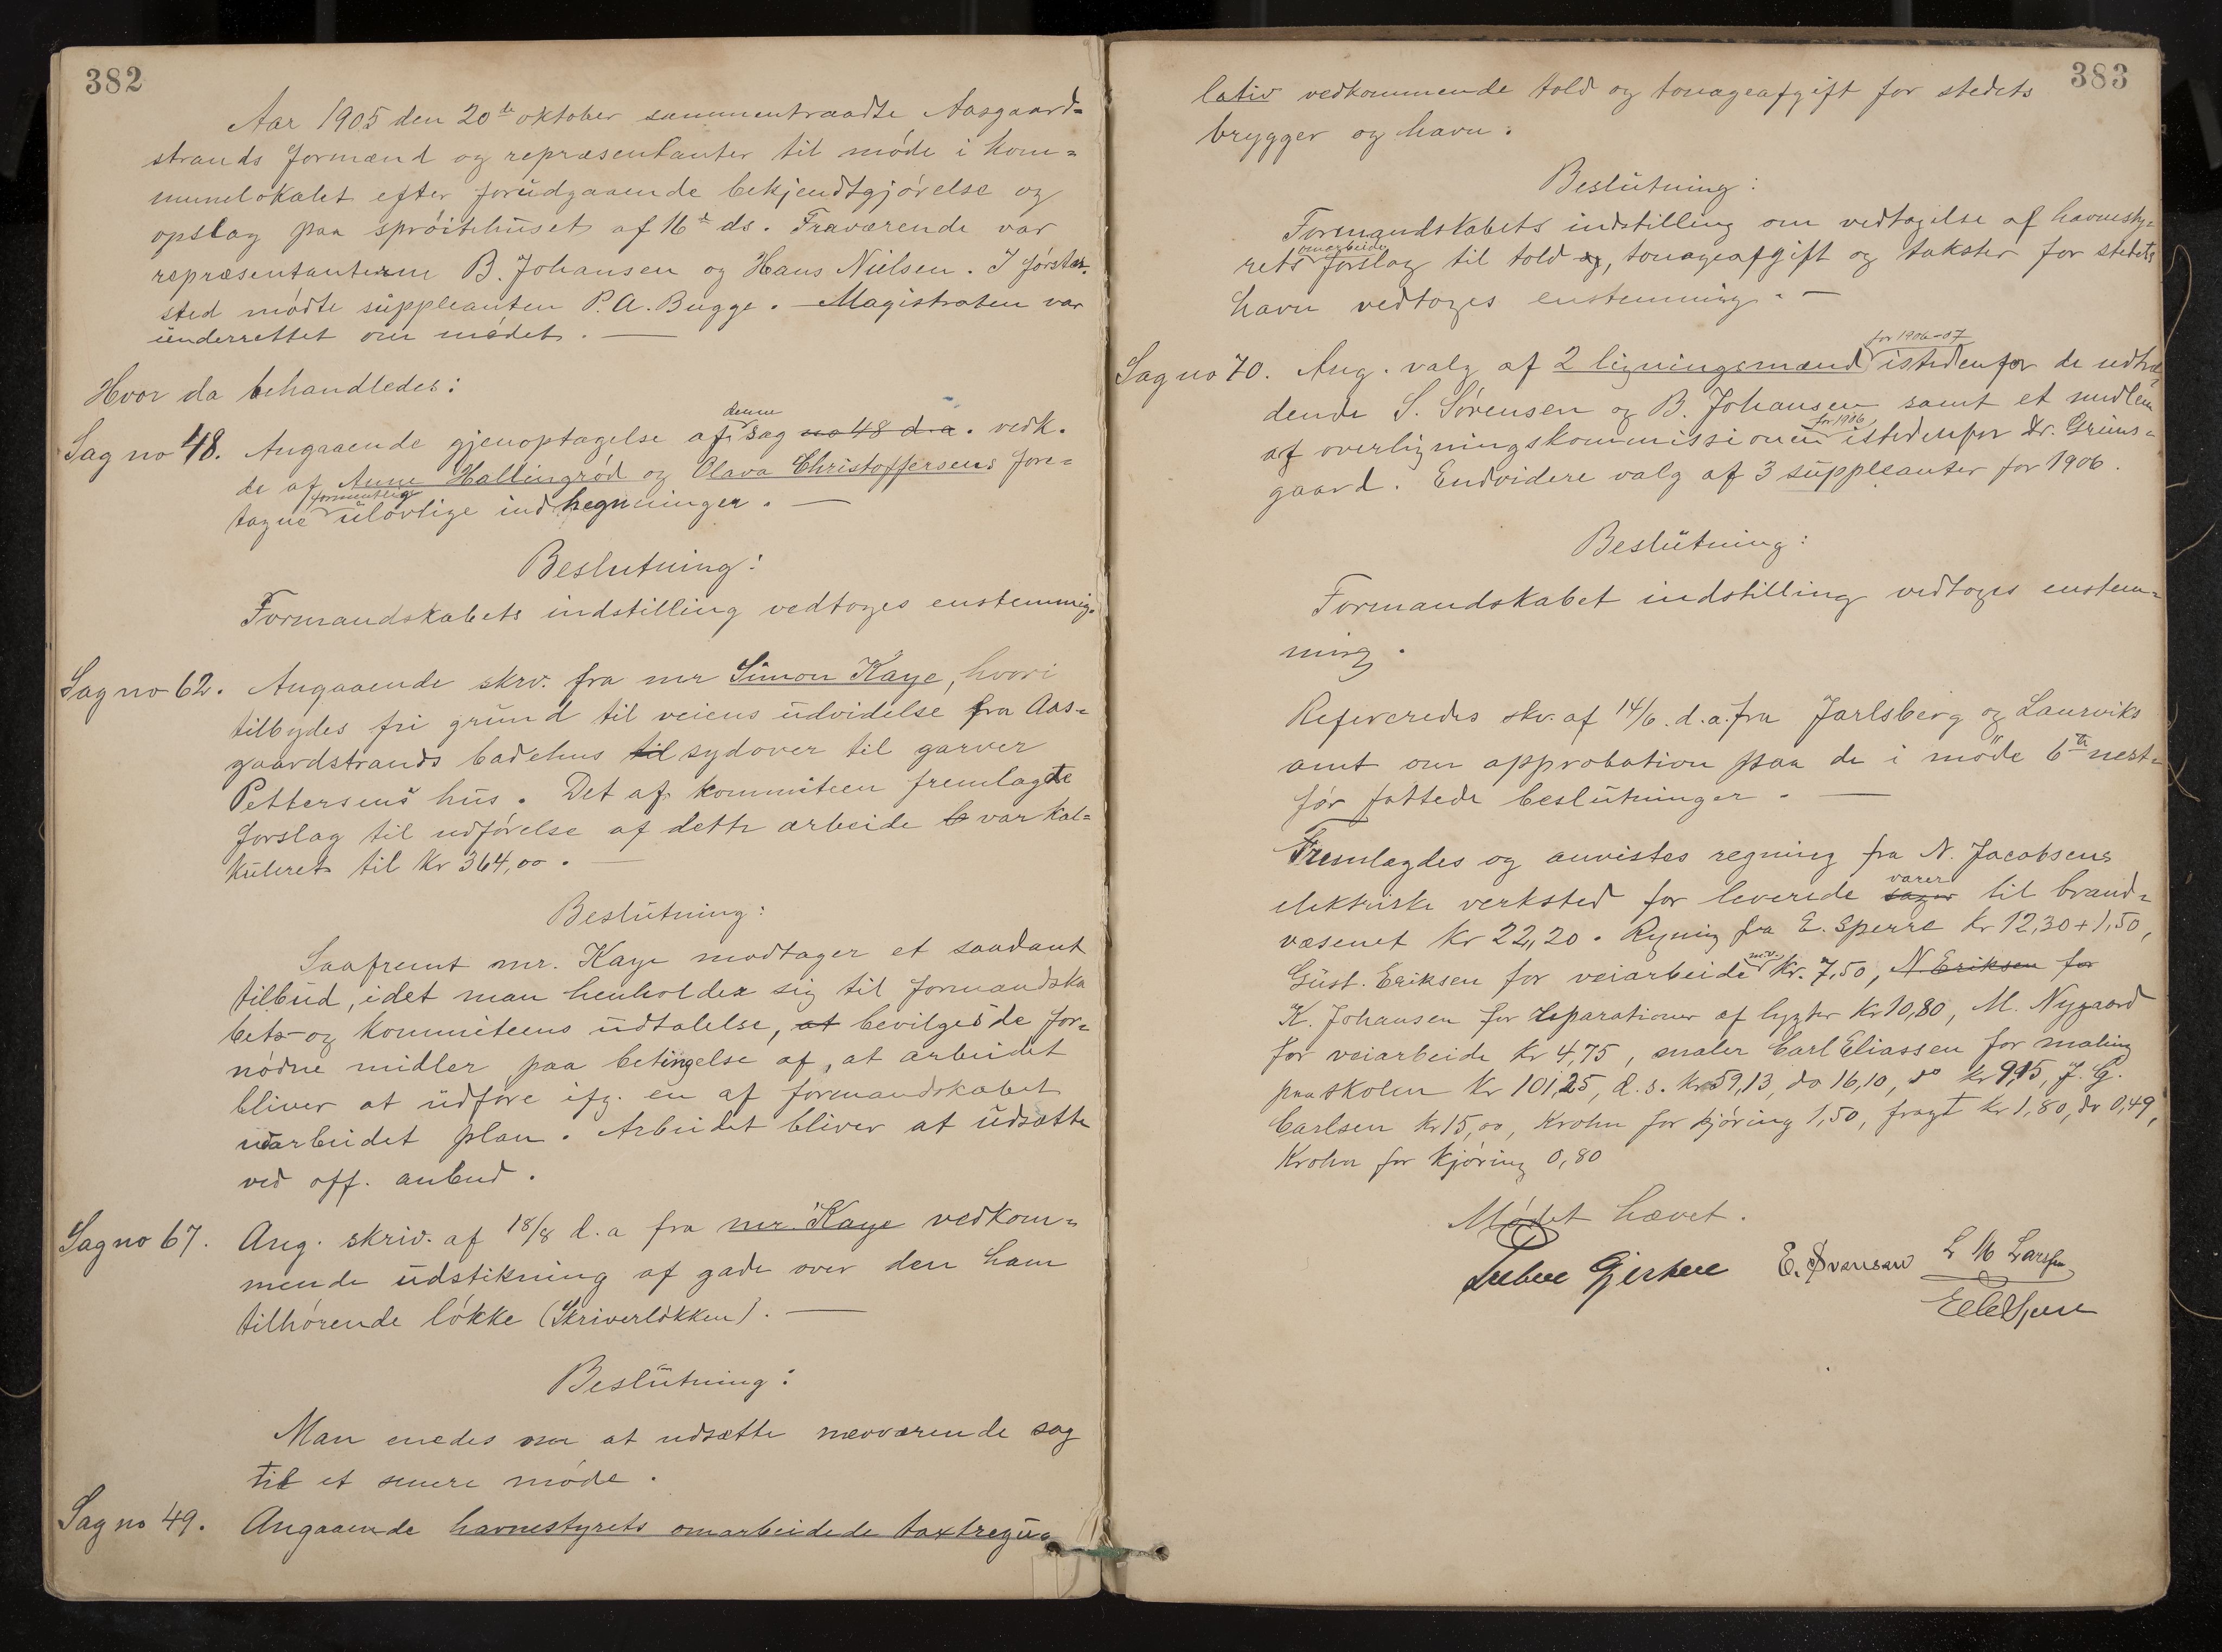 382
Aar 1905 den 20de oktober sammentraadte Aasgaard=
strands formænd og repræsentanter til møde i kom=
munelokalet efter forudgaaende bekjendtgjørelse og
opslag paa sprøitehuset af 16de ds. Fraværende var
repræsentanterne B. Johansen og Hans Nielsen. I førstes
sted mødte suppleanten P. A. Bugge. — Magistraten var
underrettet om mødet. —
Hvor da behandledes:
Sag no 48. Angaaende gjenoptagelse af denne sag no 48 d.a. vedk.
de af Anne Hallingrød og Olava Christoffersens fore=
tagne formentlige ulovlige indhegninger. —
Beslutning:
Formandskabets indstilling vedtoges enstemmig.
Sag no 62. Angaaende skrv. fra mr Simon Kaye, hvori
tilbydes fri grund til veiens udvidelse fra Aas=
gaardstrands badehus til sydover til garver
Pettersens hus. Det af kommiteen fremlagte
forslag til udførelse af dette arbeide b var kal=
kuleret til Kr 364,00. —
Beslutning:
Saafremt mr. Kaye modtager et saadant
tilbud, idet man henholder sig til formandska
bets- og kommiteens udtalelse, at bevilges de for=
nødne midler paa betingelse af, at arbeidet
bliver at udføre ifg. en af formandskabet
uarbeidet plan. Arbeidet bliver at udsætte
ved off. anbud.
Sag no 67. Ang. skriv. af 18/8 d.a fra mr. Kaye vedkom=
mende udstikning af gade over den ham
tilhørende løkke (Skriverløkken). —
Beslutning:
Man enedes om at udsætte nærværende sag
til et senere møde.
Sag no 49. Angaaende havnestyrets omarbeidede taxtregu=
383
lativ vedkommende told og tonageafgift for stedets
brygger og havn.
Beslutning:
Formandskabets indstilling om vedtagelse af havnesty=
rets omarbeidede forslag til told og, tonageafgift og takster for stedets
havn vedtoges enstemmig. —
Sag no 70. Ang. valg af 2 ligningsmænd for 1906-07 istedenfor de udtræ=
dende S. Sørensen og B. Johansen samt et medlem
af overligningskommissionen for 1906 istedenfor Dr. Grims=
gaard. Endvidere valg af 3 suppleanter for 1906.
Beslutning:
Formandskabet indstilling vedtoges enstem=
mig.
Refereredes skv. af 14/6. d.a. fra Jarlsberg og Laurviks
amt om approbation paa de i møde 6te nest=
før fattede beslutninger. —
Fremlagdes og anvistes regning fra N. Jacobsens
elektriske verksted for leverede sager varer til brand=
væsenet Kr 22,20. Regning fra E. Sperre Kr 12,30 + 1,50,
Gust. Eriksen for veiarbeide m.v. Kr. 7,50, N Eriksen for
K. Johansen for Reparationer af lygter Kr 10,80, M. Nygaard
for veiarbeide Kr 4,75, maler Carl Eliassen for maling
paa skolen Kr 101,25, d. s. Kr 59,13, do 16,10, do Kr 9,15, J. G.
Carlsen Kr 15,00, Krohn for kjøring 1,50, fragt Kr 1,80, do 0,49,
Krohn for kjøring 0,80
Mødet hævet.
E. Svensen L M Larssen